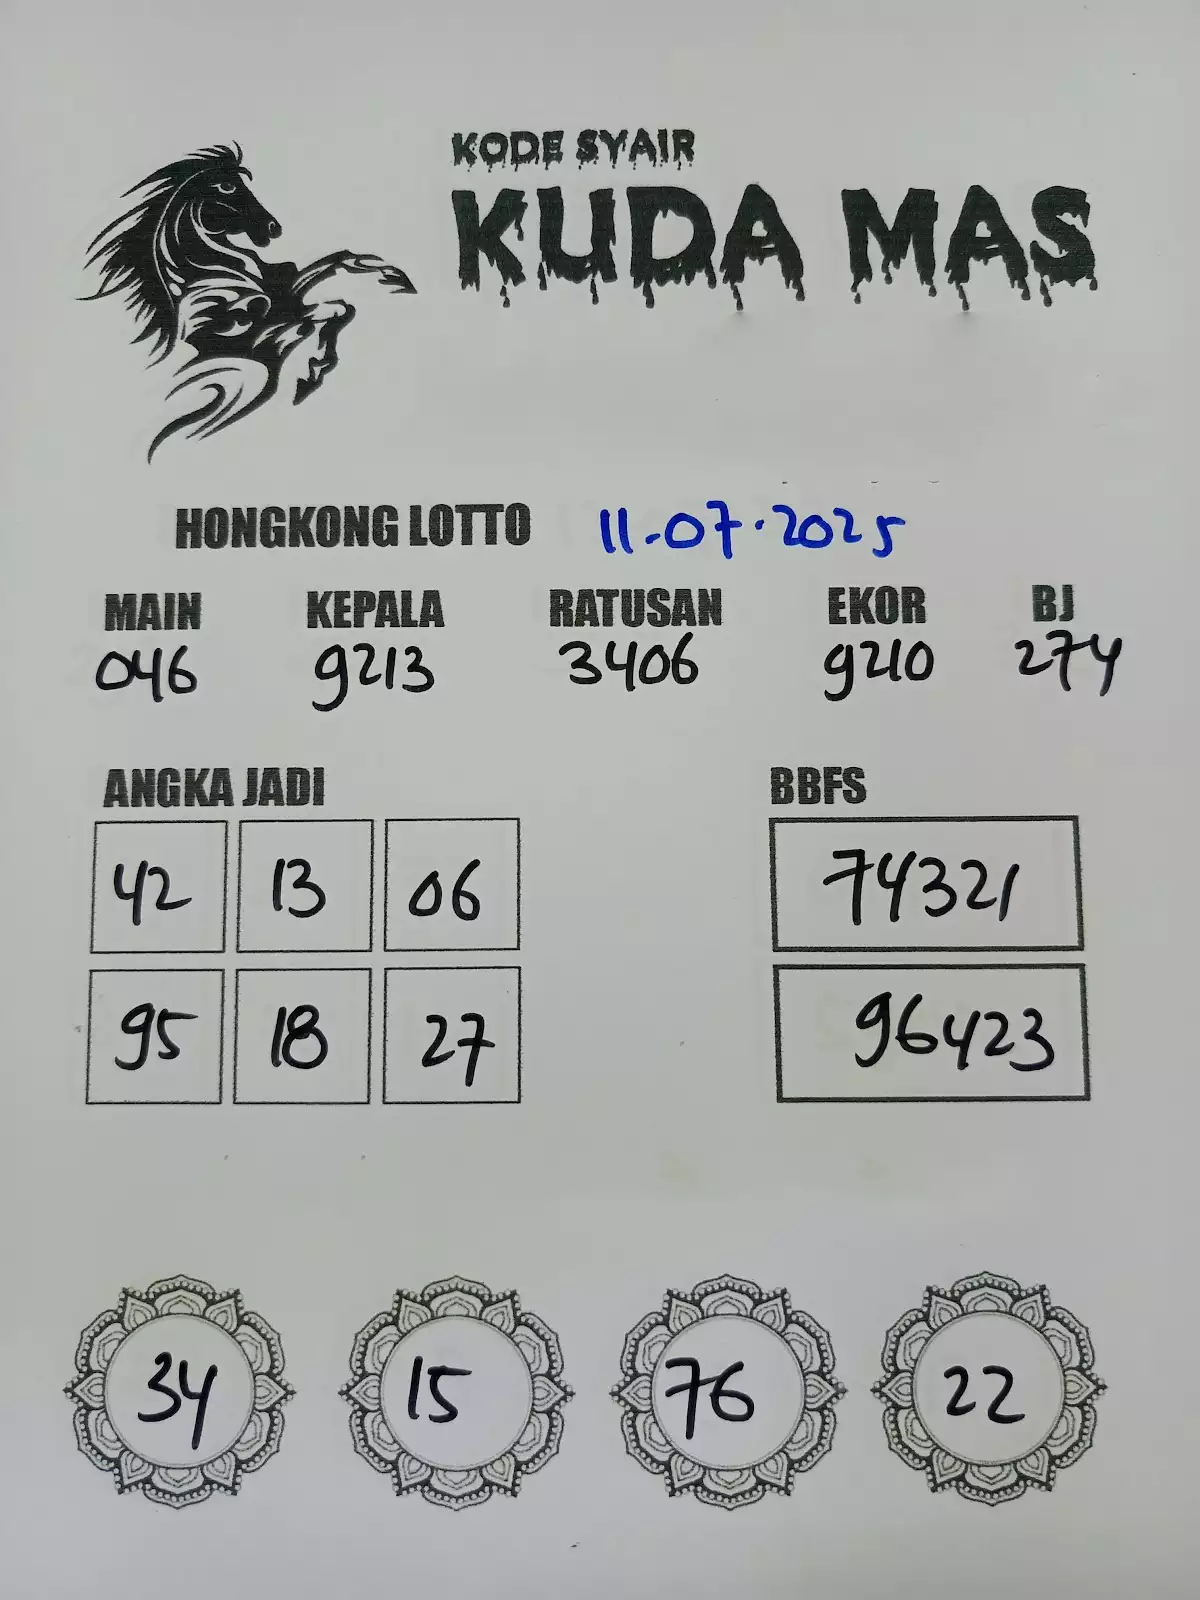 KODE SYAIR
KUDA MAS
HONGKONG LOTTO 11-07-2025
MAIN KEPALA RATUSAN EKOR BJ
046 9213 3406 9210 274
ANGKA JADI BBFS
42 13 06 74321
95 18 27 96423
34 15 76 22